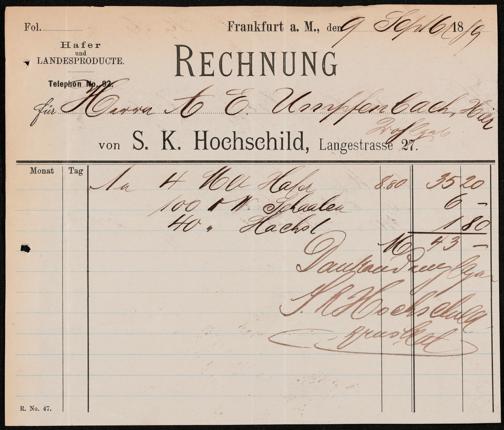 Fol.
Frankfurt a. M., den 9 Septb 1889
Hafer
und
LANDESPRODUCTE.
Telephon No. 92.
RECHNUNG
für Herrn A E. Umpfenbach, Hier
von S. K. Hochschild, Langestrasse 27.
Monat Tag
An 4 Hafer 8.80 35 20
100 Schaalen 6 –
40 " Häcksl 1 80
M 43 –
Dankend empfangen
S. K Hochschild
R. No. 47.